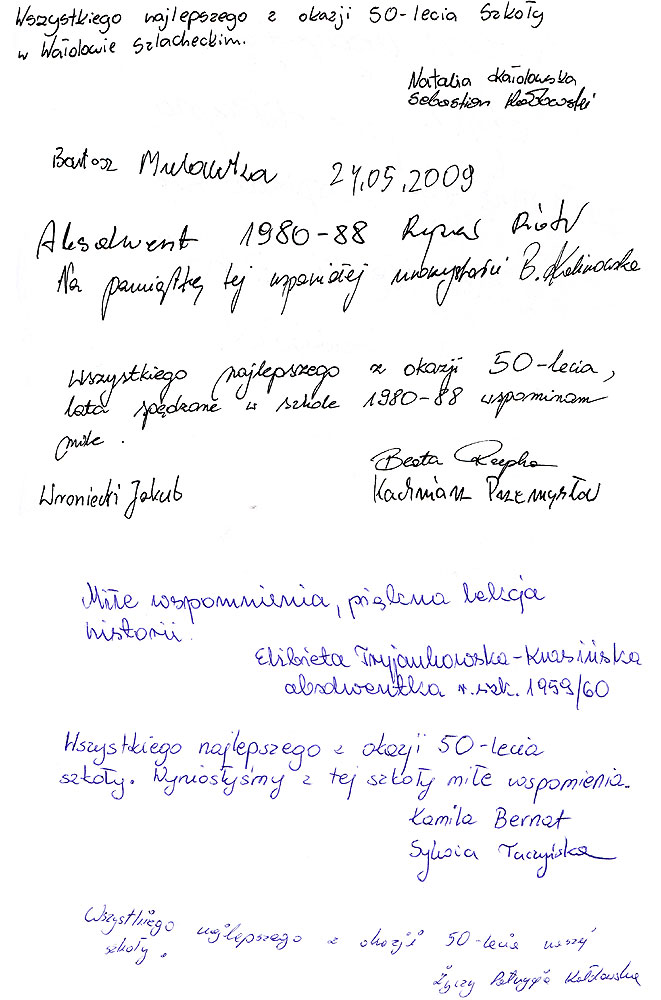 Wszystkiego najlepszego z okazji 50-lecia Szkoły
w Szlacheckim.
Natalia
Sebastian
Bartosz 24.05.2009
Absolwent 1980-88 Piotr
Na pamiątkę tej wspaniałej uroczystości B. Kalinowska
Wszystkiego najlepszego z okazji 50-lecia,
lata spędzone w szkole 1980-88 wspominam
mile.
Beata Rzepka
Wroniecki Jakub
Kaźmiarz Przemysław
Miłe wspomnienia, piękna lekcja
historii.
Elżbieta Tryjankowska-Krasińska
absolwentka r. szk. 1959/60
Wszystkiego najlepszego z okazji 50-lecia
szkoły. Wyniosłyśmy z tej szkoły miłe wspomienia.
Kamila Bernat
Sylwia Taczyńska
Wszystkiego najlepszego z okazji 50-lecia naszej
szkoły.
Życzy Patrycja